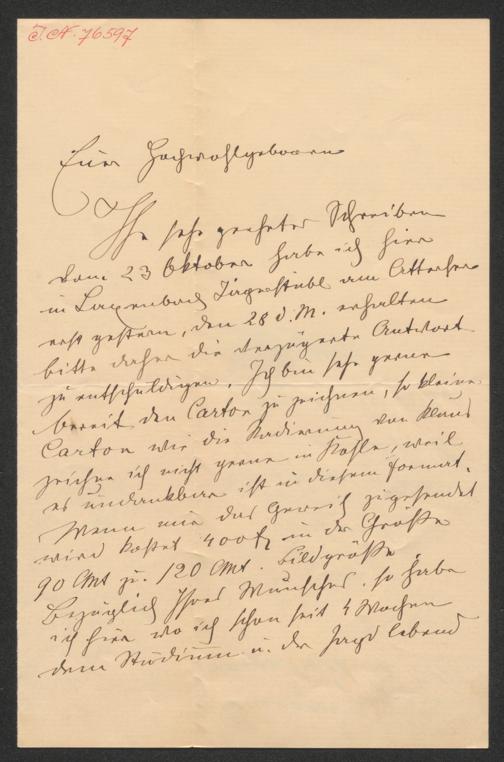 I.N. 76597
Euer Hochwohlgeboren
Ihr sehr geehrtes Schreiben
vom 23 Oktober habe ich hier
in Jägerstübl am Attersee
erst gestern, den 28 d. M. erhalten
bitte daher die verzögerte Antwort
zu entschuldigen. Ich bin sehr gerne
bereit den Carton zu zeichnen, so kleine
Carton wie die Radierung von Klaus
zeichne ich nicht gerne in Kohle, weil
es undankbar ist in diesem Format.
Wenn mir das Geweih zugesendet
wird kostet 400 fl in der Größe
90 Cmt zu 120 Cmt. Bildgröße
Bezüglich Ihres Wunsches, so habe
ich hier wo ich schon seit 4 Wochen
dem Studium u. der Jagd lebend